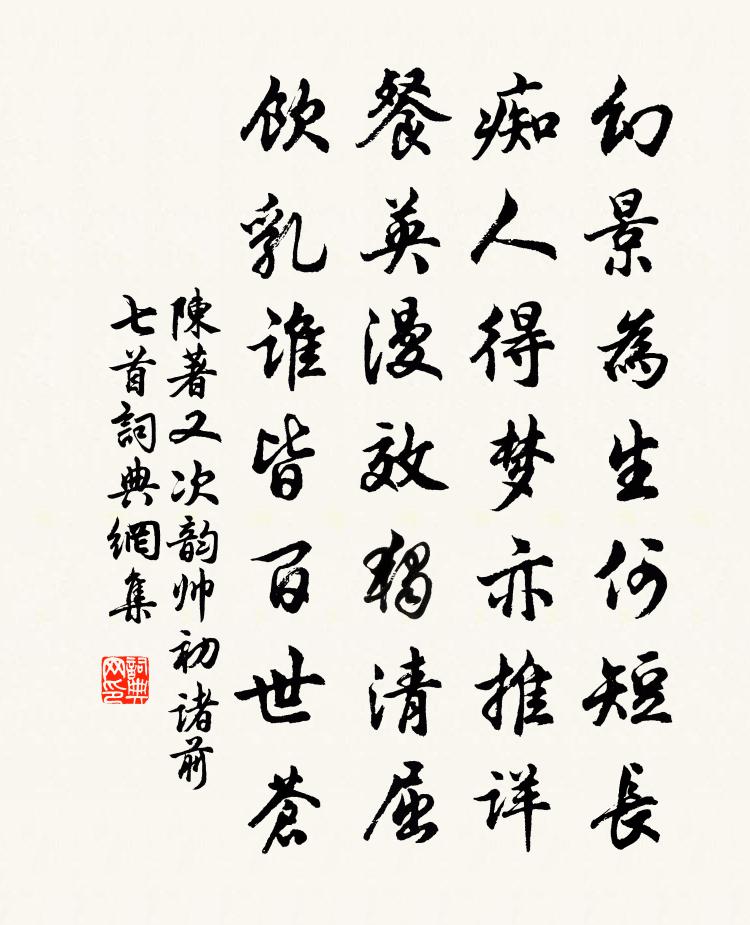 幻景為生何短長
痴人得梦亦推详
餐英漫效独清屈
飲乳谁皆百世蒼
陳著又次韵帅初诸前
七首詞典網集
詞典網印